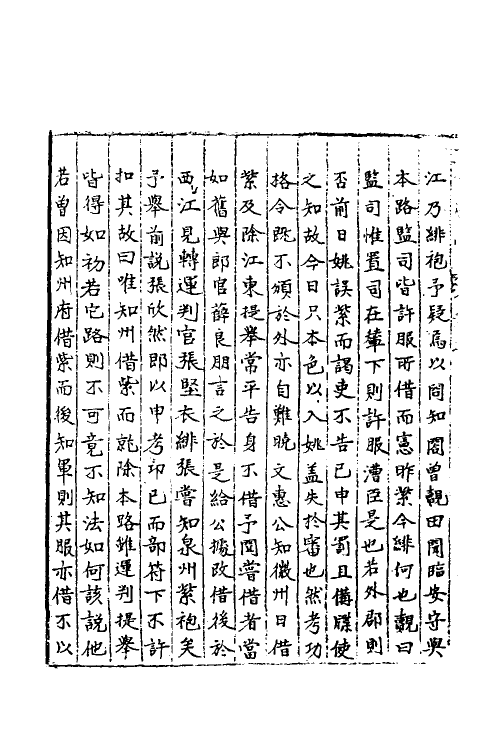 江乃緋袍予疑焉以問知閤曾覿田聞臨安守與
本路監司皆許服所借而憲昨紫今緋何也覿曰
監司惟置司在輦下則許服漕臣是也若外郡則
否前日姚誤紫而謁吏不告已申其罰且備牒使
之知故今日只本色以入姚蓋失於審也然考功
格令既不頒於外亦自難曉文惠公知徽州日借
紫及除江東提舉常平告身不借予聞嘗借者當
如舊與郎官薛良朋言之於是給公據改借後於
西江見轉運判官張堅衣緋張嘗知泉州紫袍矣
予舉前說張欣然即以申考功已而部符下不許
扣其故曰唯知州借紫而就除本路雖運判提舉
皆得如初若它路則不可竟不知法如何該說他
若曾因知州府借紫而後知軍則其服亦借不以